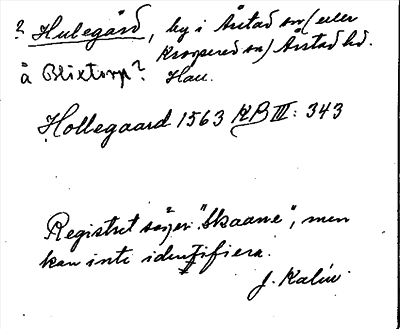 ? Hulegård, by i Årstad sn/ eller
Kropered sn/ Årstad hd.
å Blixtorp? Hall.
Hollegaard 1563 KB III: 343
Registret säger "Skaane", men
kan inte identifiera.
J. Kalén